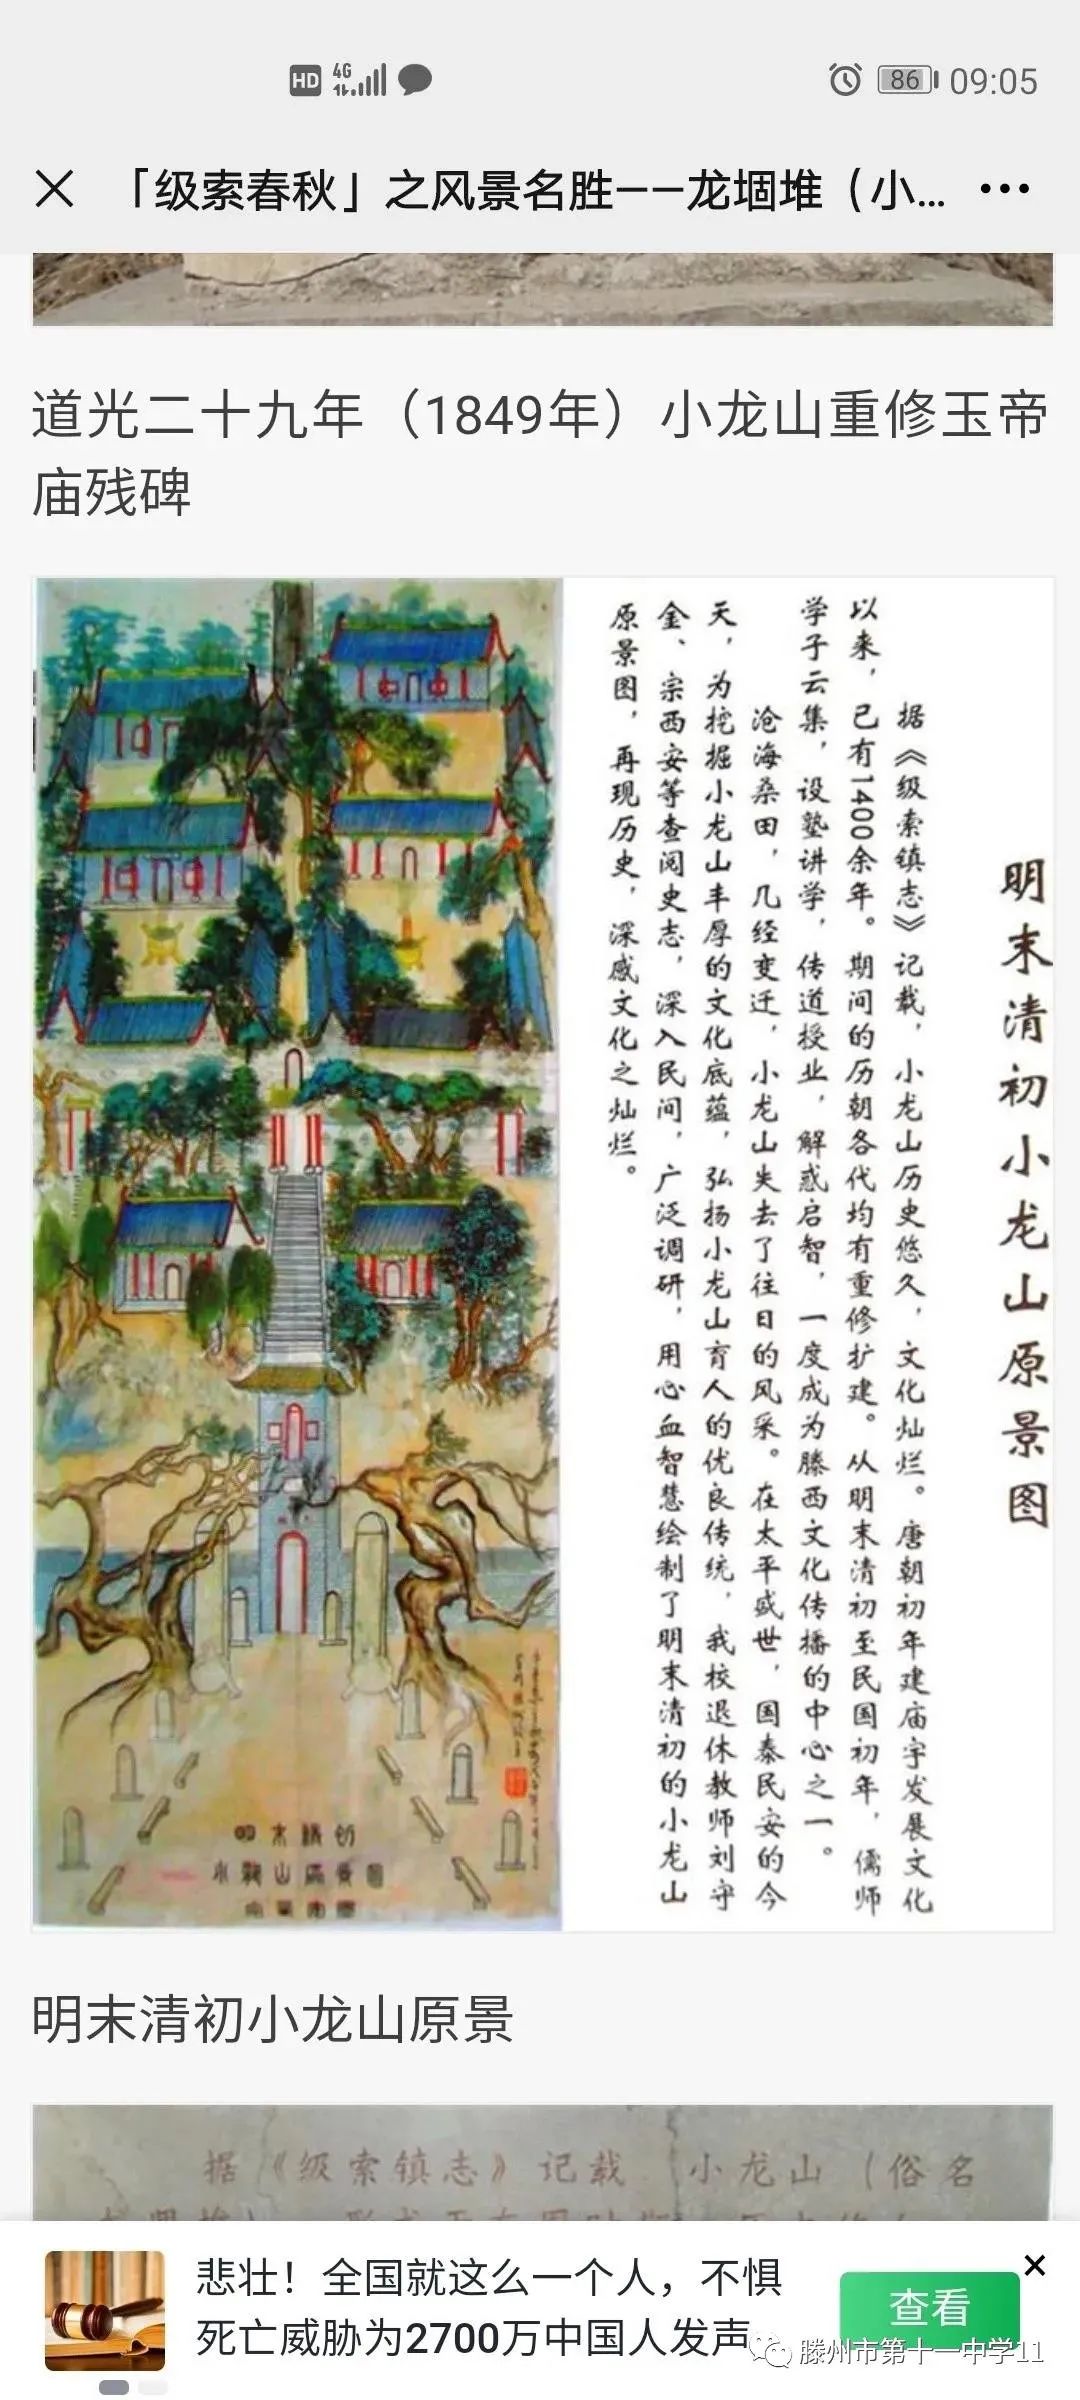 HD 4G 86 09:05
「级索春秋」之风景名胜——龙堌堆（小...
道光二十九年（1849年）小龙山重修玉帝
庙残碑
明末清初小龙山原景图
据《级索镇志》记载，小龙山历史悠久，文化灿烂。唐朝初年建庙宇发展文化
以来，已有1400余年。期间的历朝各代均有重修扩建。从明末清初至民国初年，儒师
学子云集，设塾讲学，传道授业，解惑启智，一度成为滕西文化传播的中心之一。
沧海桑田，几经变迁，小龙山失去了往日的风采。在太平盛世，国泰民安的今
天，为挖掘小龙山丰厚的文化底蕴，弘扬小龙山育人的优良传统，我校退休教师刘守
金、宗西安等查阅史志，深入民间，广泛调研，用心血智慧绘制了明末清初的小龙山
原景图，再现历史，深感文化之灿烂。
明末清初
小龙山原景图
明末清初小龙山原景
据《级索镇志》记载 小龙山（俗名
悲壮！全国就这么一个人，不惧
死亡威胁为2700万中国人发声
查看
滕州市第十一中学11